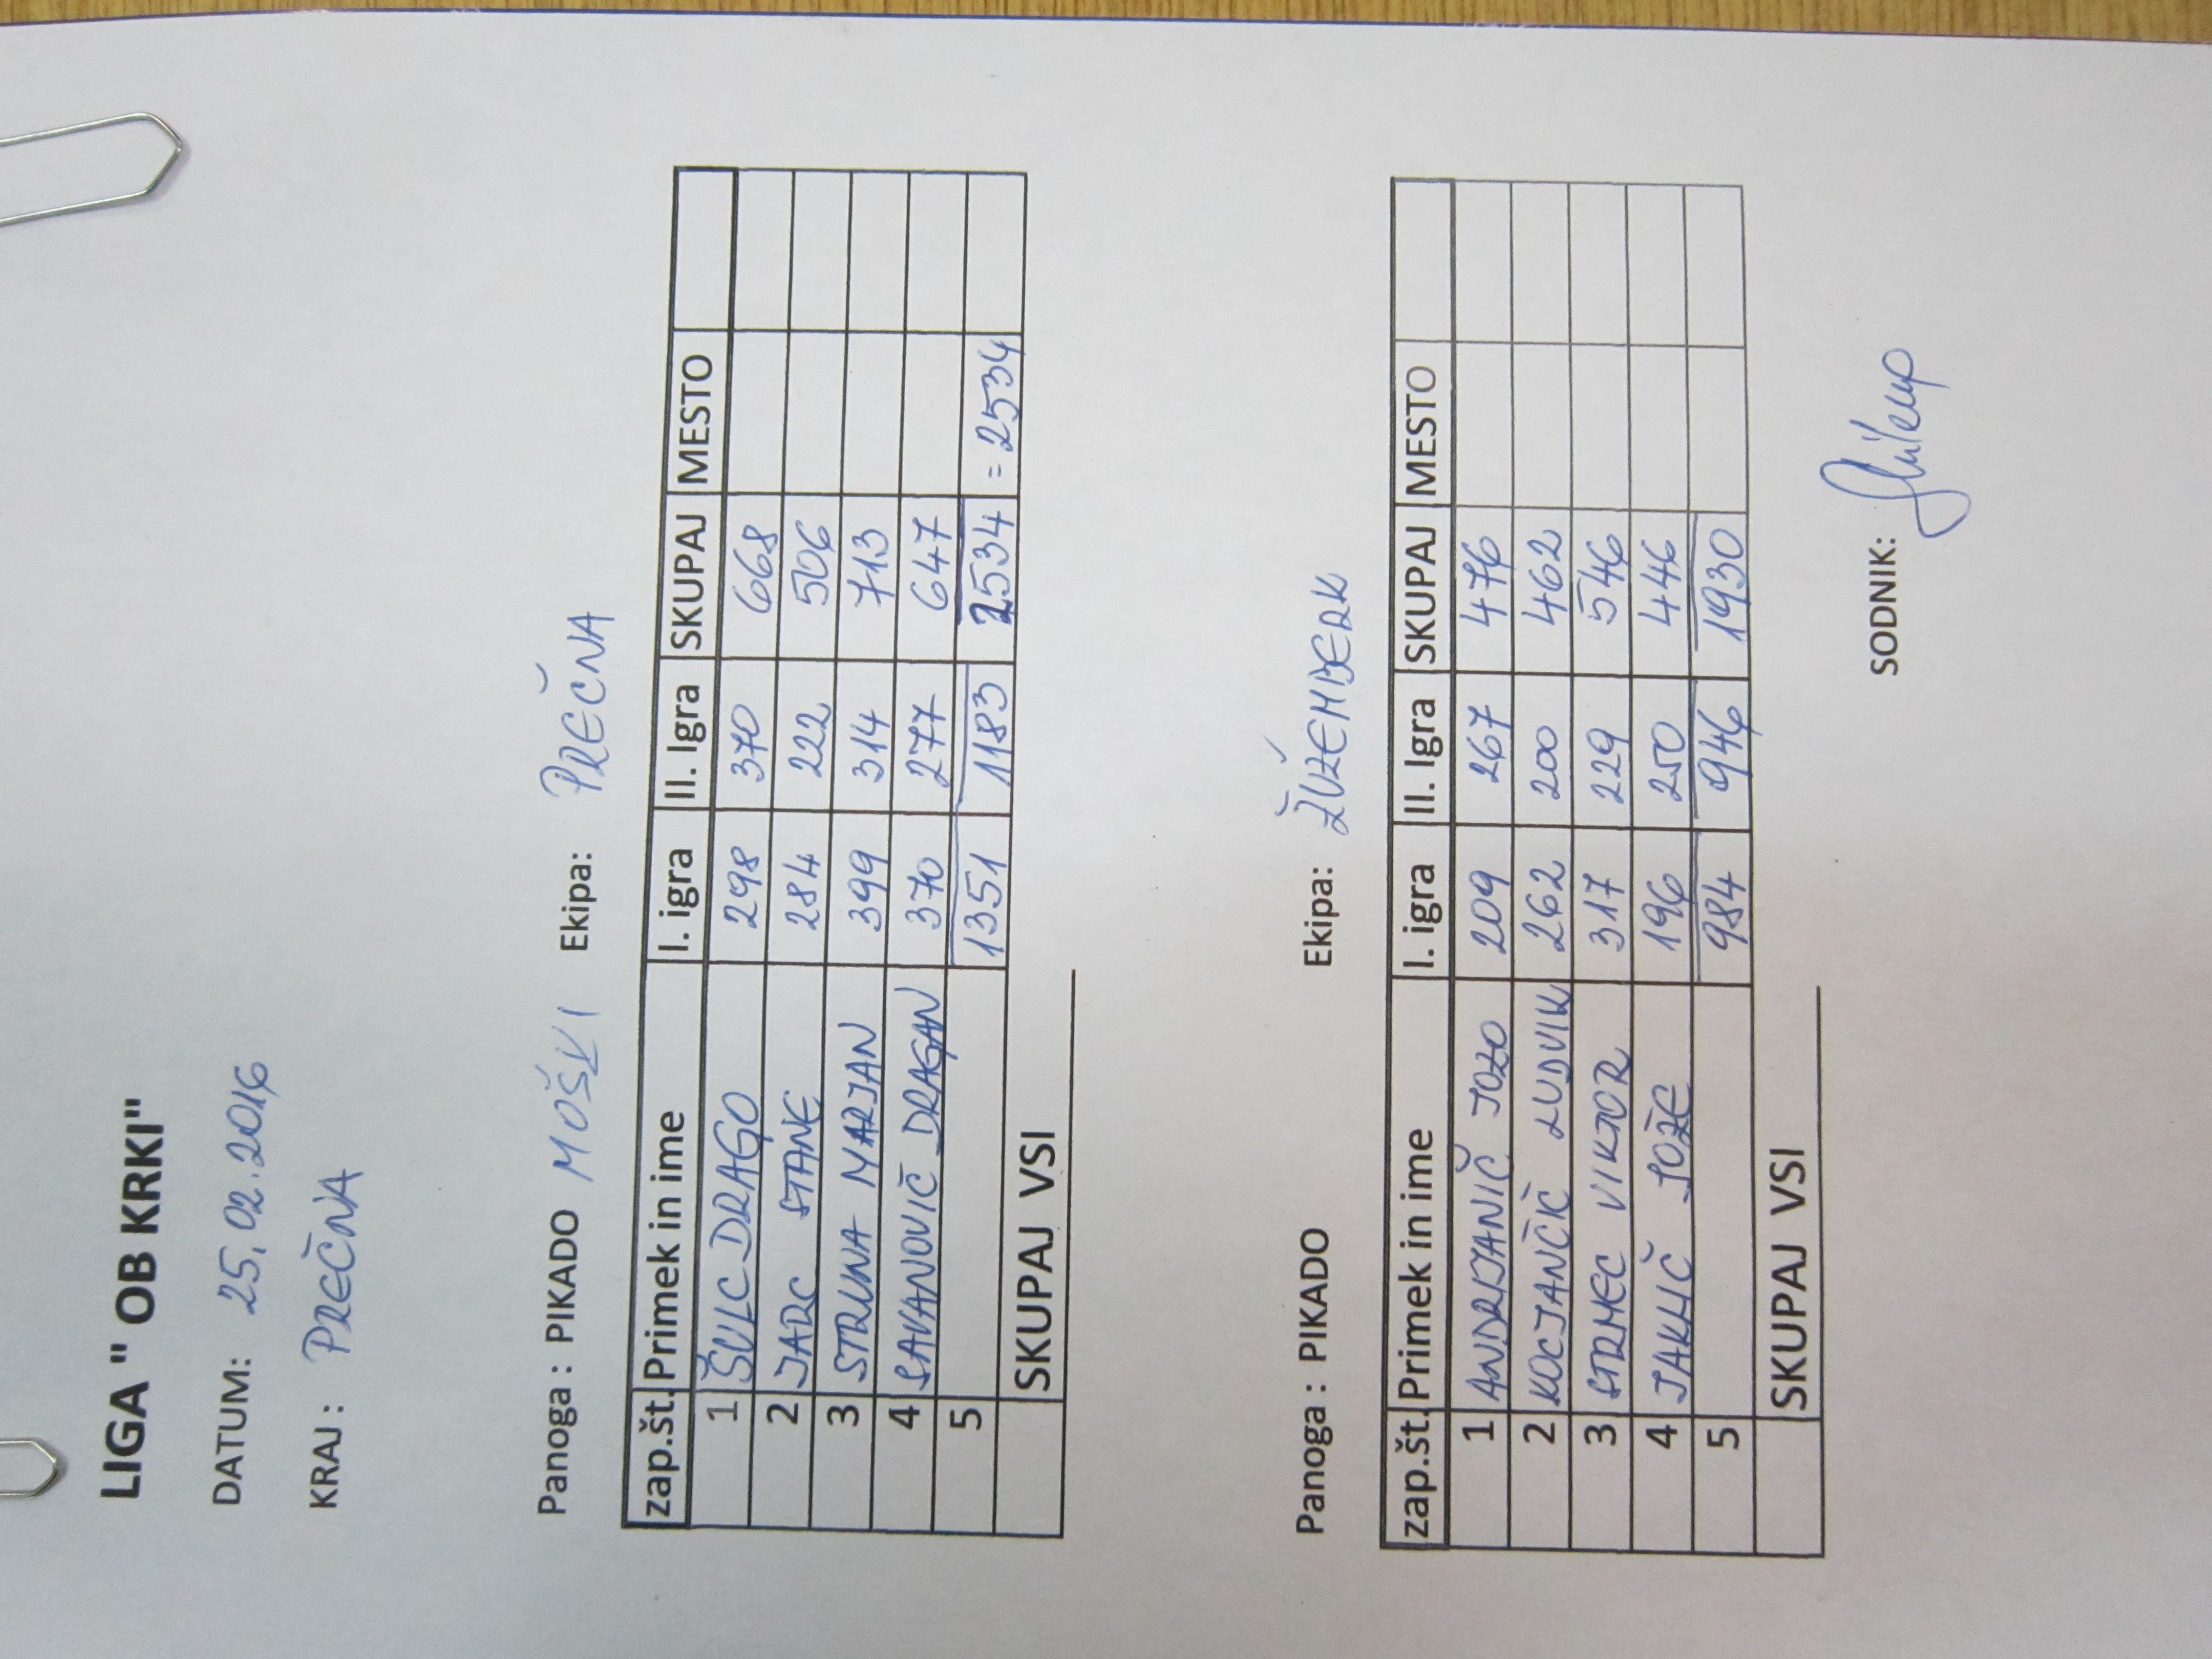 LIGA " OB KRKI"
DATUM: 25.02.2016
KRAJ : PREČNA
Panoga : PIKADO MOŠKI Ekipa: PREČNA
zap.št. Primek in ime I. igra II. Igra SKUPAJ MESTO
1 ŠULC DRAGO 298 370 668
2 JARC STANE 284 222 506
3 STRUNA MARJAN 399 314 713
4 SAVANOVIČ DRAGAN 370 277 647
5 1351 1183 2534 = 2534
SKUPAJ VSI
Panoga : PIKADO Ekipa: ŽUŽEMBERK
zap.št. Primek in ime I. igra II. Igra SKUPAJ MESTO
1 ANDRIJANIČ JOZO 209 267 476
2 KOCJANČIČ LUDVIK 262 200 462
3 STRMEC VIKTOR 317 229 546
4 JAKLIČ JOŽE 196 250 446
5 984 946 1930
SKUPAJ VSI
SODNIK: